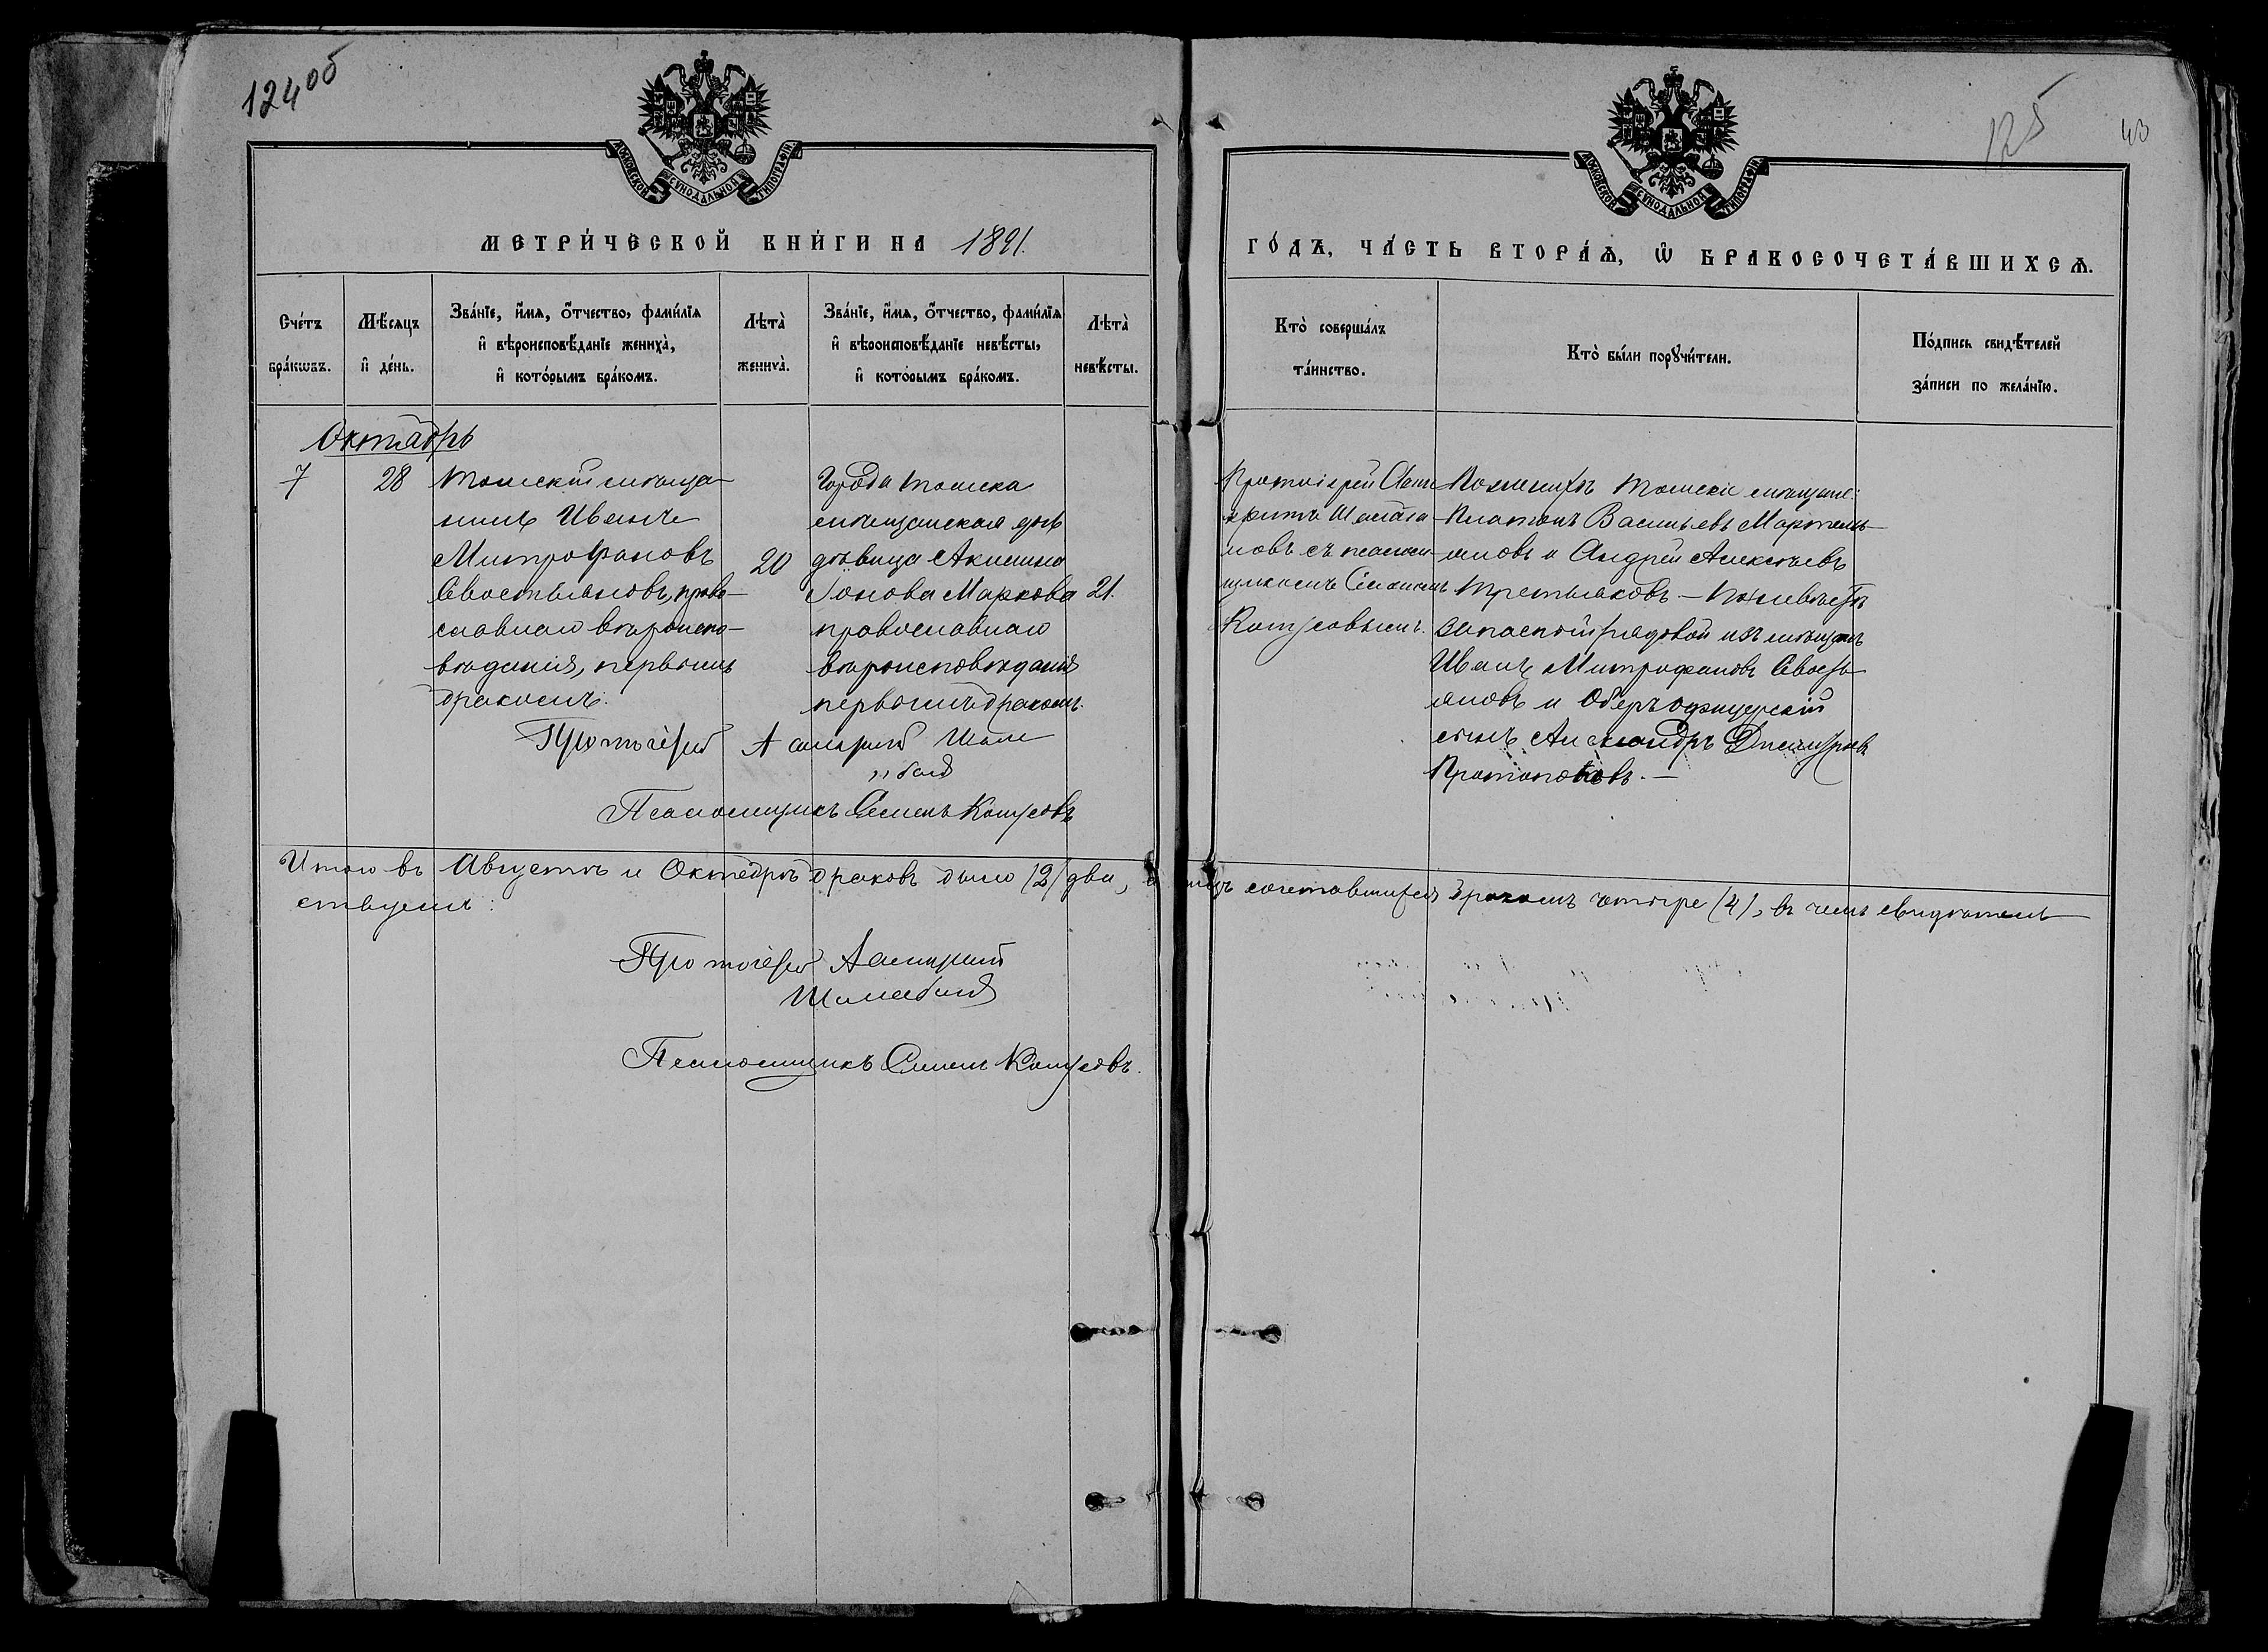 124 об
125
43
МОСКОВСКОЙ СѴНОДАЛЬНОЙ ТИПОГРАФІИ.
МОСКОВСКОЙ СѴНОДАЛЬНОЙ ТИПОГРАФІИ.
МЕТРИ́ЧЕСКОЙ КНИ́ГИ НА 1891.
ГО́ДЪ, ЧА́СТЬ ВТОРА́Ѧ, Ѿ БРАКОСОЧЕТА́ВШИХСѦ.
Сче́тъ
бра́кѡвъ.
Мѣ́сѧцъ
и҆ де́нь.
Зва́нїе, и҆́мѧ, ѻ҆́тчество, фами́лїѧ
и҆ вѣроисповѣ́данїе жениха̀,
и҆ кото́рымъ бра́комъ.
Лѣта̀
жениха̀.
Зва́нїе, и҆́мѧ, ѻ҆́тчество, фами́лїѧ
и҆ вѣроисповѣ́данїе невѣ́сты,
и҆ кото́рымъ бра́комъ.
Лѣта̀
невѣ́сты.
Кто̀ соверша́лъ
та́инство.
Кто̀ бы́ли порꙋчи́тели.
По́дпись свидѣ́телей
за́писи по жела́нїю.
Октябрь
7
28
Томскій мѣща-
нинъ Иванъ
Митрофановъ
Севостьяновъ, право-
славнаго вѣроиспо-
вѣданія, первымъ
бракомъ.
20
Города Томска
мѣщанская дочь
дѣвица Акилина
Іонова Маркова
православнаго
вѣроисповѣданія
первымъ бракомъ.
21.
Протоіерей Асин-
критъ Шала-
новъ съ псалом-
щикомъ Семеномъ
По женихѣ Томскіе мѣщане:
Платонъ Васильевъ Мартемь-
яновъ и Андрей Алексѣевъ
Третьяковъ — По невѣстѣ
запасной рядовой изъ мѣщанъ
Иванъ Митрофановъ Севость-
яновъ и Оберъ офицерскій
сынъ Александръ Дмитріевъ
Протопоповъ. —
Протоіерей Асинкритъ
Псаломщикъ Семенъ
Итого въ Августѣ и Октябрѣ браковъ было (2) два, а лицъ сочетавшихся бракомъ четыре (4), въ чемъ свидѣтель-
ствуемъ:
Протоіерей Асинкритъ
Псаломщикъ Семенъ